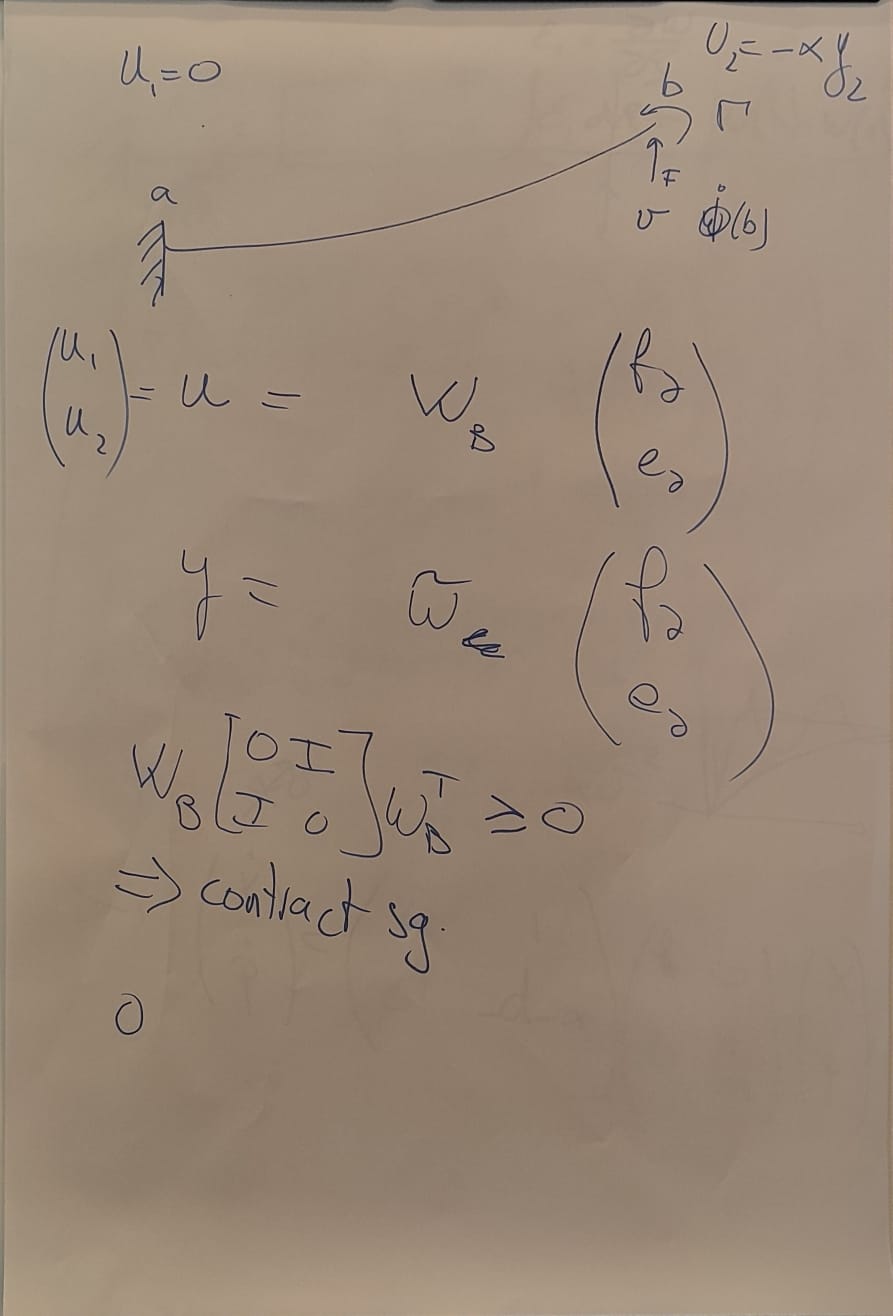 U₁=0
U₂=-αy₂
b
Γ
a
F
v ϕ̇(b)
(u₁ u₂) = u = W_B (f_∂ e_∂)
y = W̃ (f_∂ e_∂)
W_B [0 I I 0] W_B^T ≥ 0
⇒ contract sg.
0